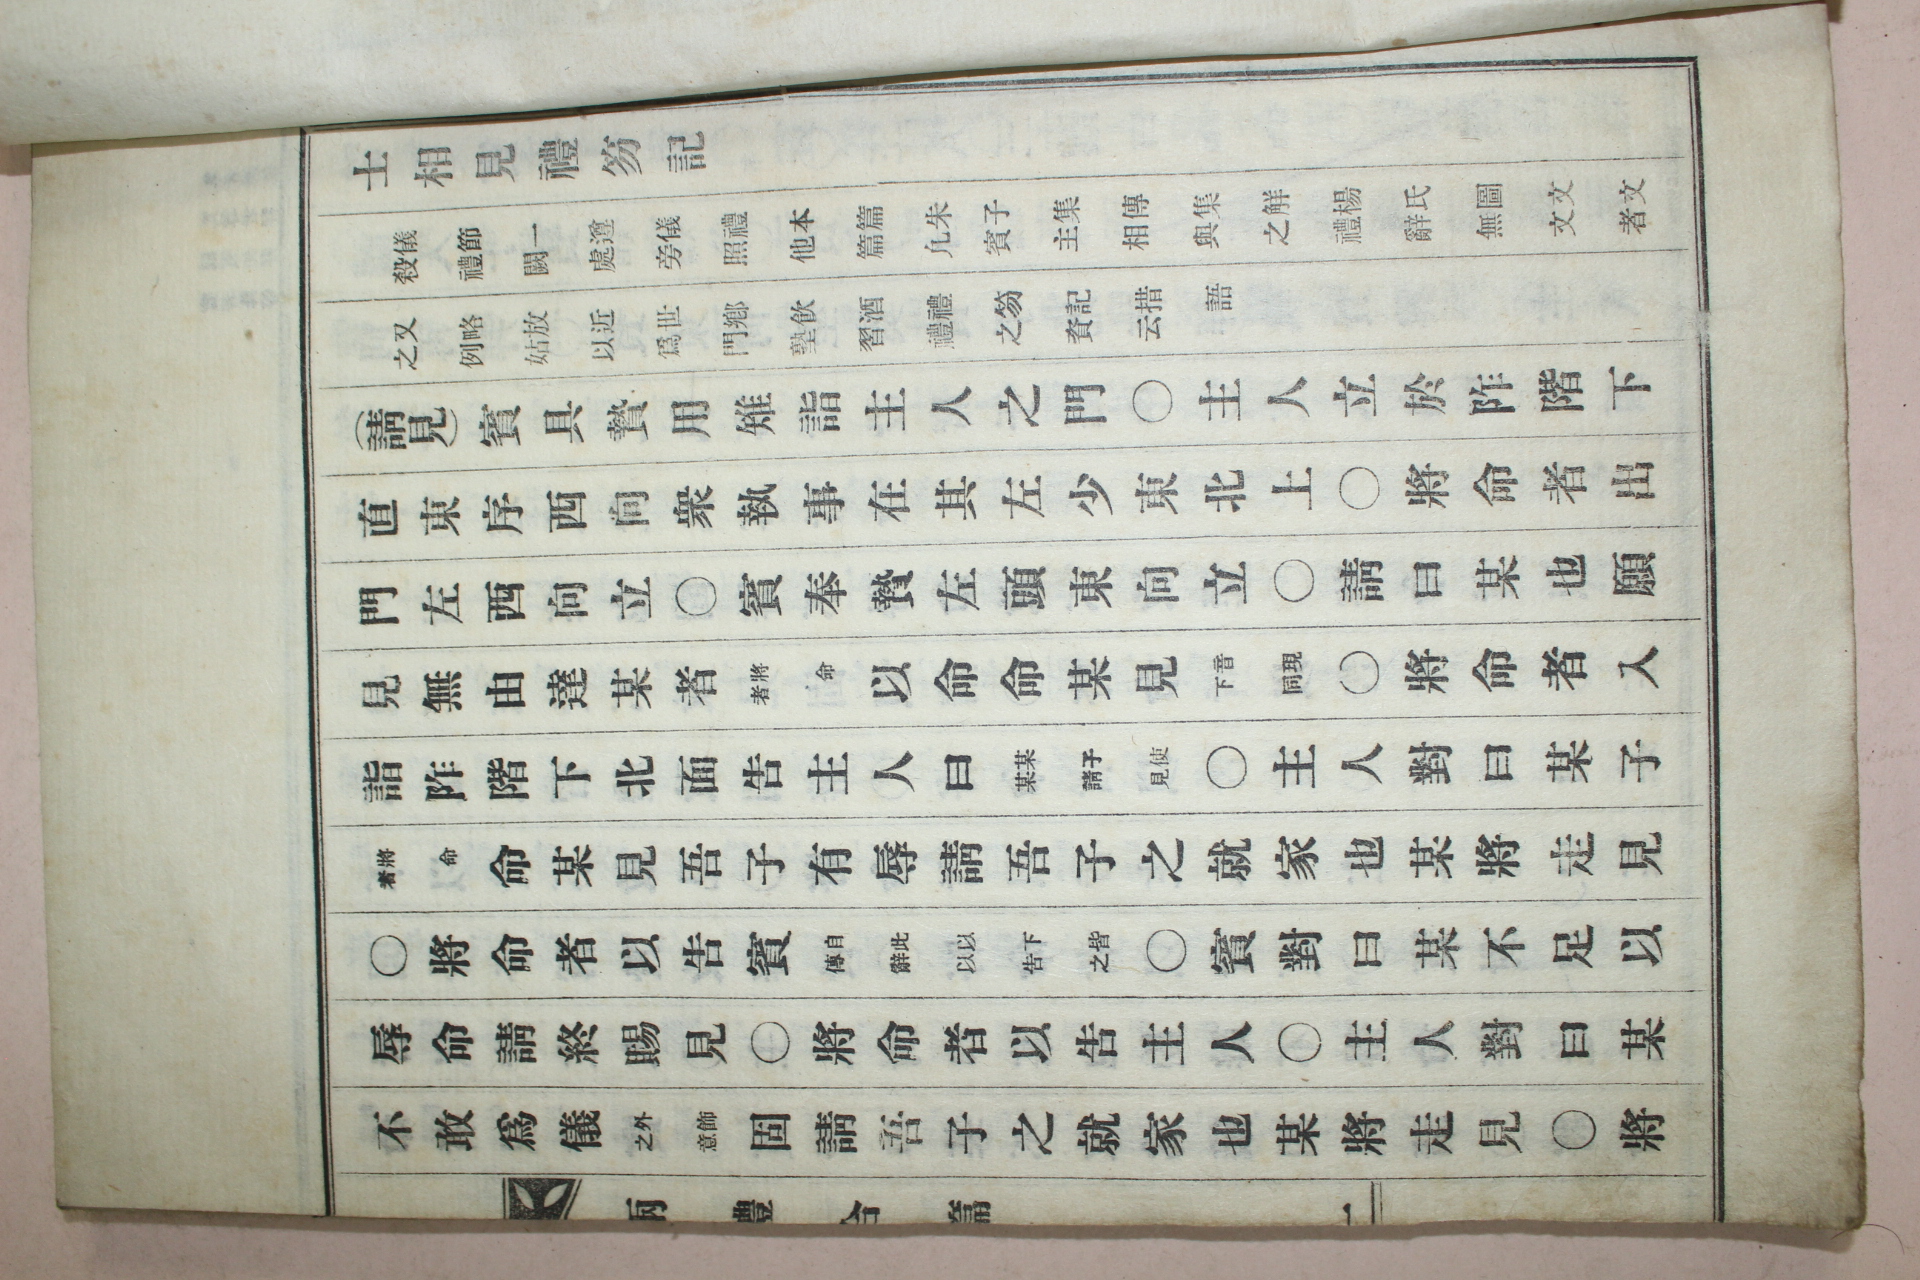 士相見禮笏記
儀節一遵儀禮本篇朱子集傳集觧楊氏圖文文
殺禮闕處旁照他篇凢賓主相與之禮辭無文者
又略放近世鄉飲酒禮笏記措語
之例姑以爲門塾習禮之資云
(請見)賓具贄用雉詣主人之門○主人立於阼階下
直東序西向衆執事在其左少東北上○將命者出
門左西向立○賓奉贄左頭東向立○請曰某也願
見無由達某者將命者以命命某見音現下同○將命者入
詣阼階下北面告主人曰某子使某請見○主人對曰某子
將命者命某見吾子有辱請吾子之就家也某將走見
○將命者以告賓自此以下皆傳辭以告之○賓對曰某不足以
辱命請終賜見○將命者以告主人○主人對曰某
不敢爲儀外飾之意固請吾子之就家也某將走見○將
兩禮合篇